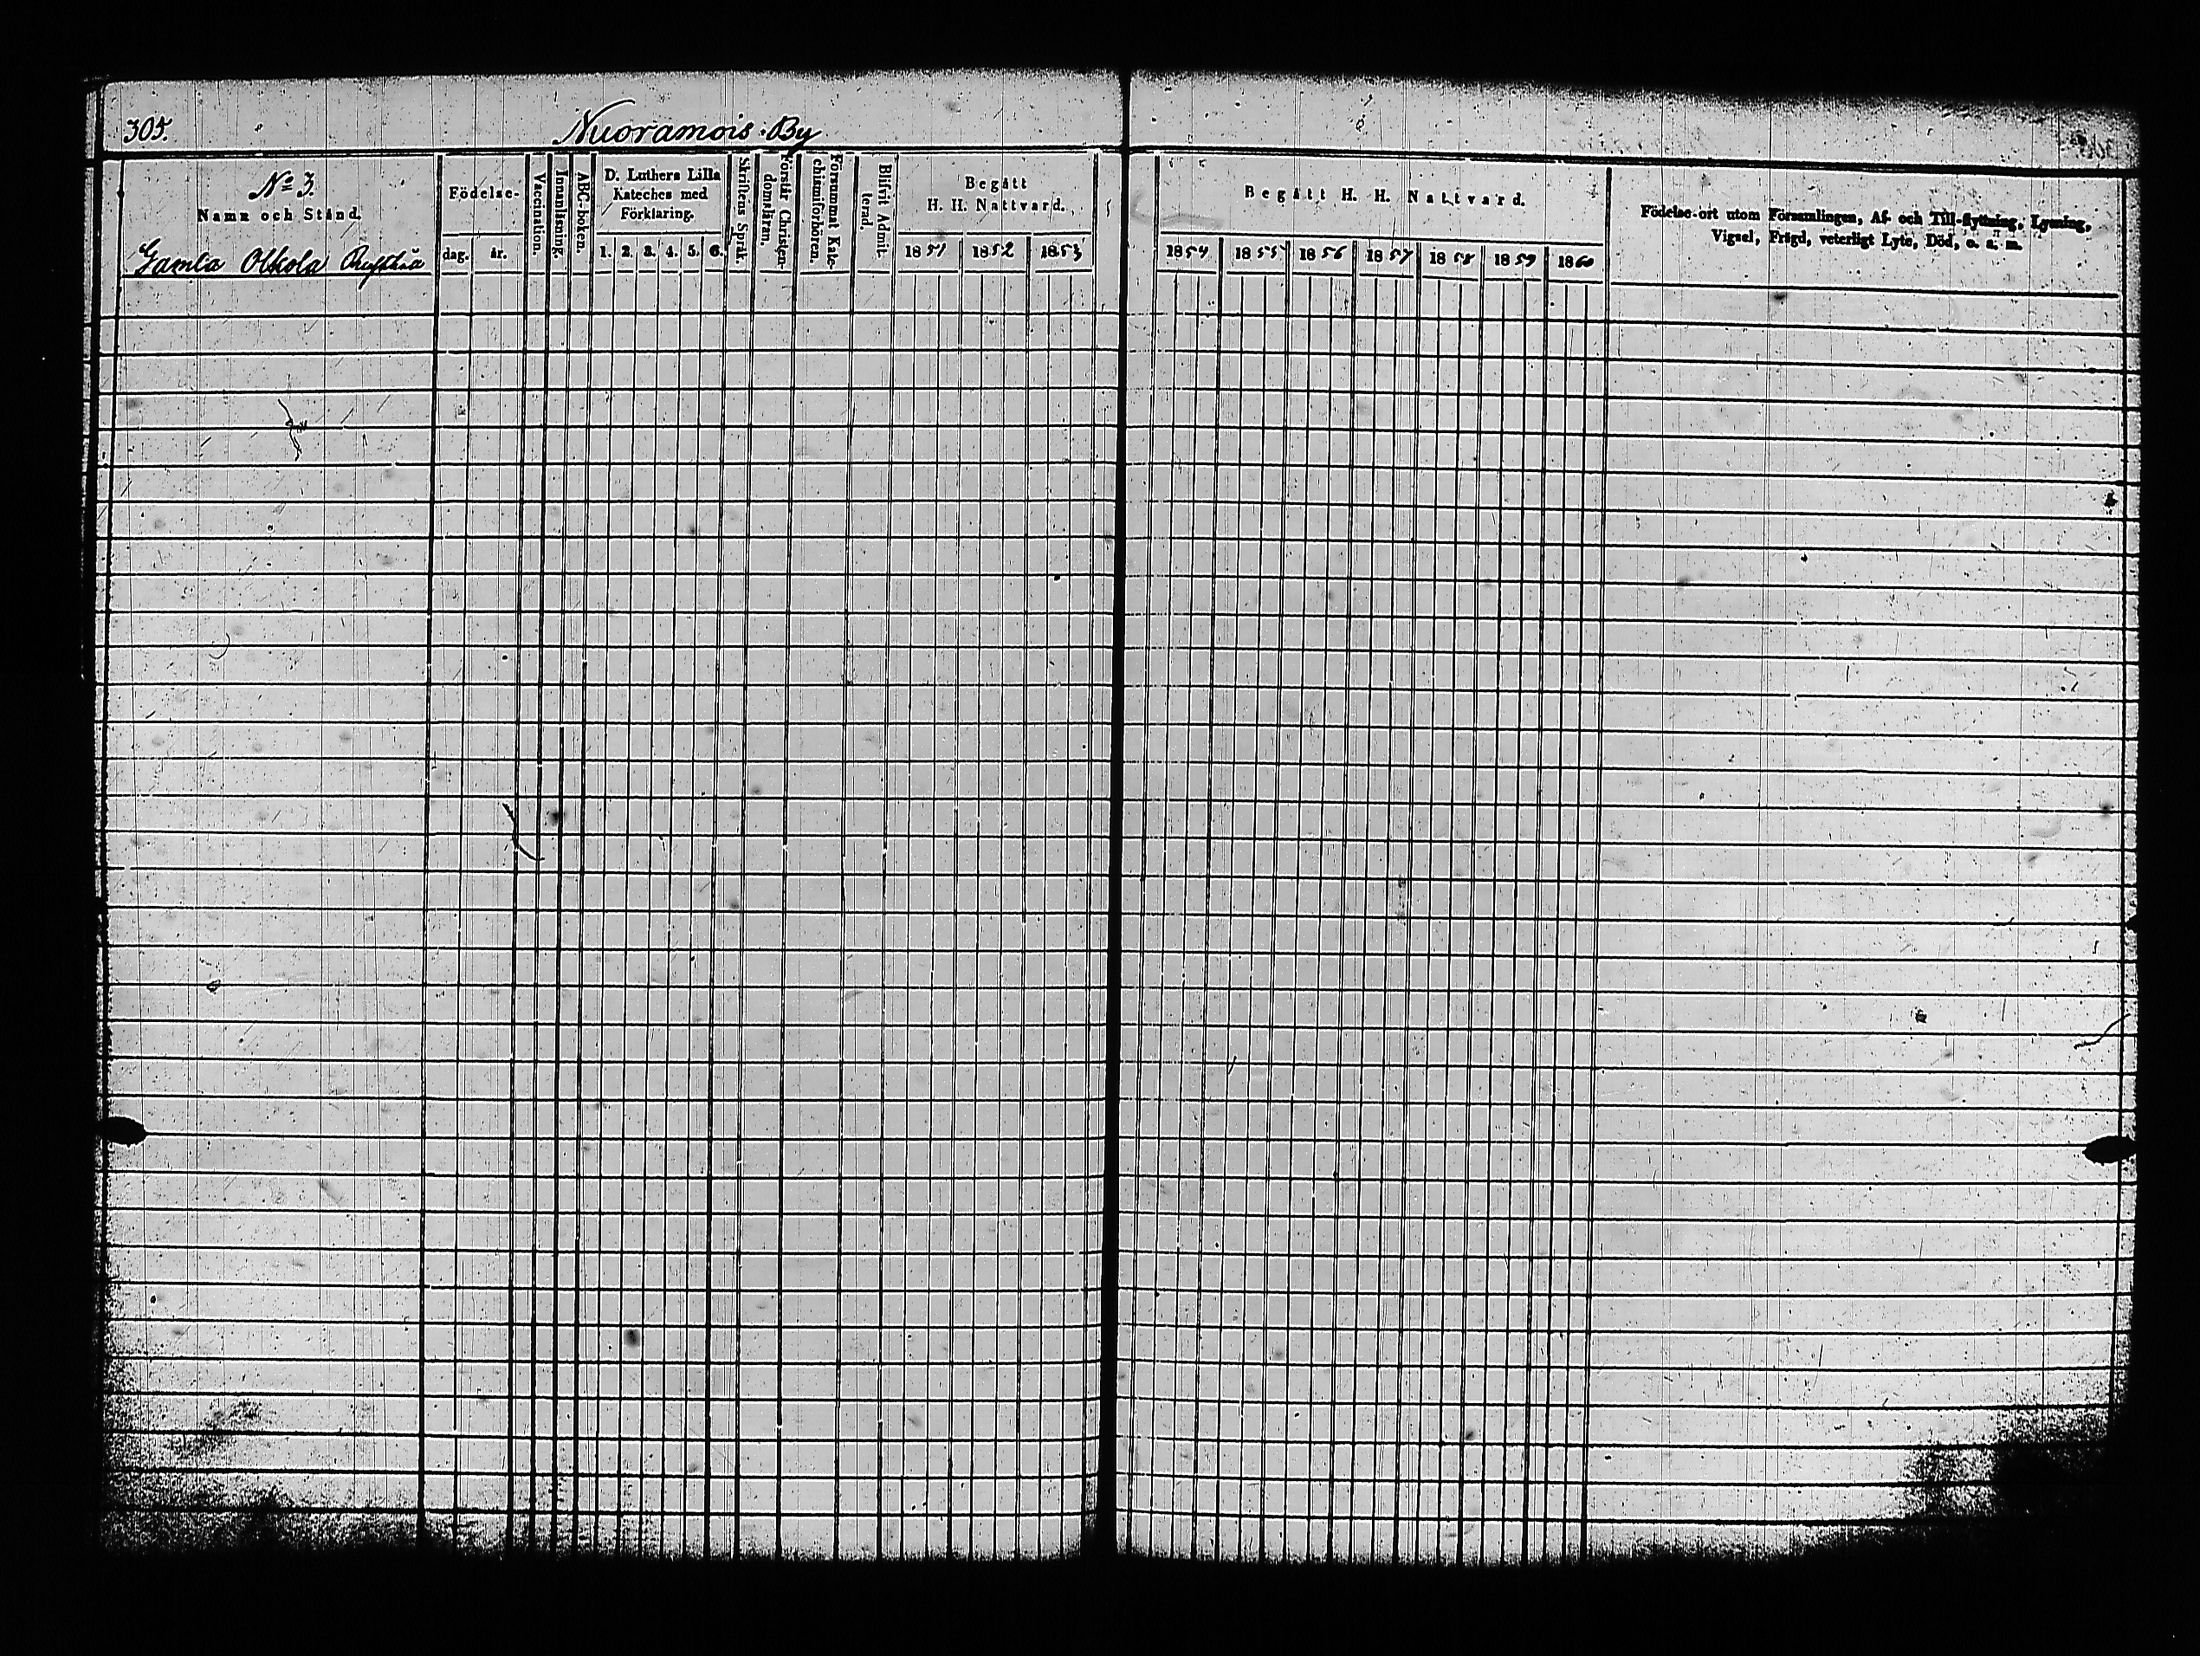 305.
Nuoramois By
No 3.
Namn och Stånd.
Gamla Olkola
Födelse-
dag.
år.
Vaccination.
Innanläsning.
ABC-boken.
D. Luthers Lilla
Kateches med
Förklaring.
1. 2. 3. 4. 5. 6.
Skriftens Språk.
Förstår Christen-
domsläran.
Försummat Kate-
chismiförhören.
Blifvit Admit-
terad.
Begått
H. H. Nattvard.
1851 1852 1853
Begått H. H. Nattvard.
1854 1855 1856 1857 1858 1859 1860
Födelse-ort utom Församlingen, Af- och Till-flyttning, Lysning,
Vigsel, Frägd, veterligt Lyte, Död, o. a. m.